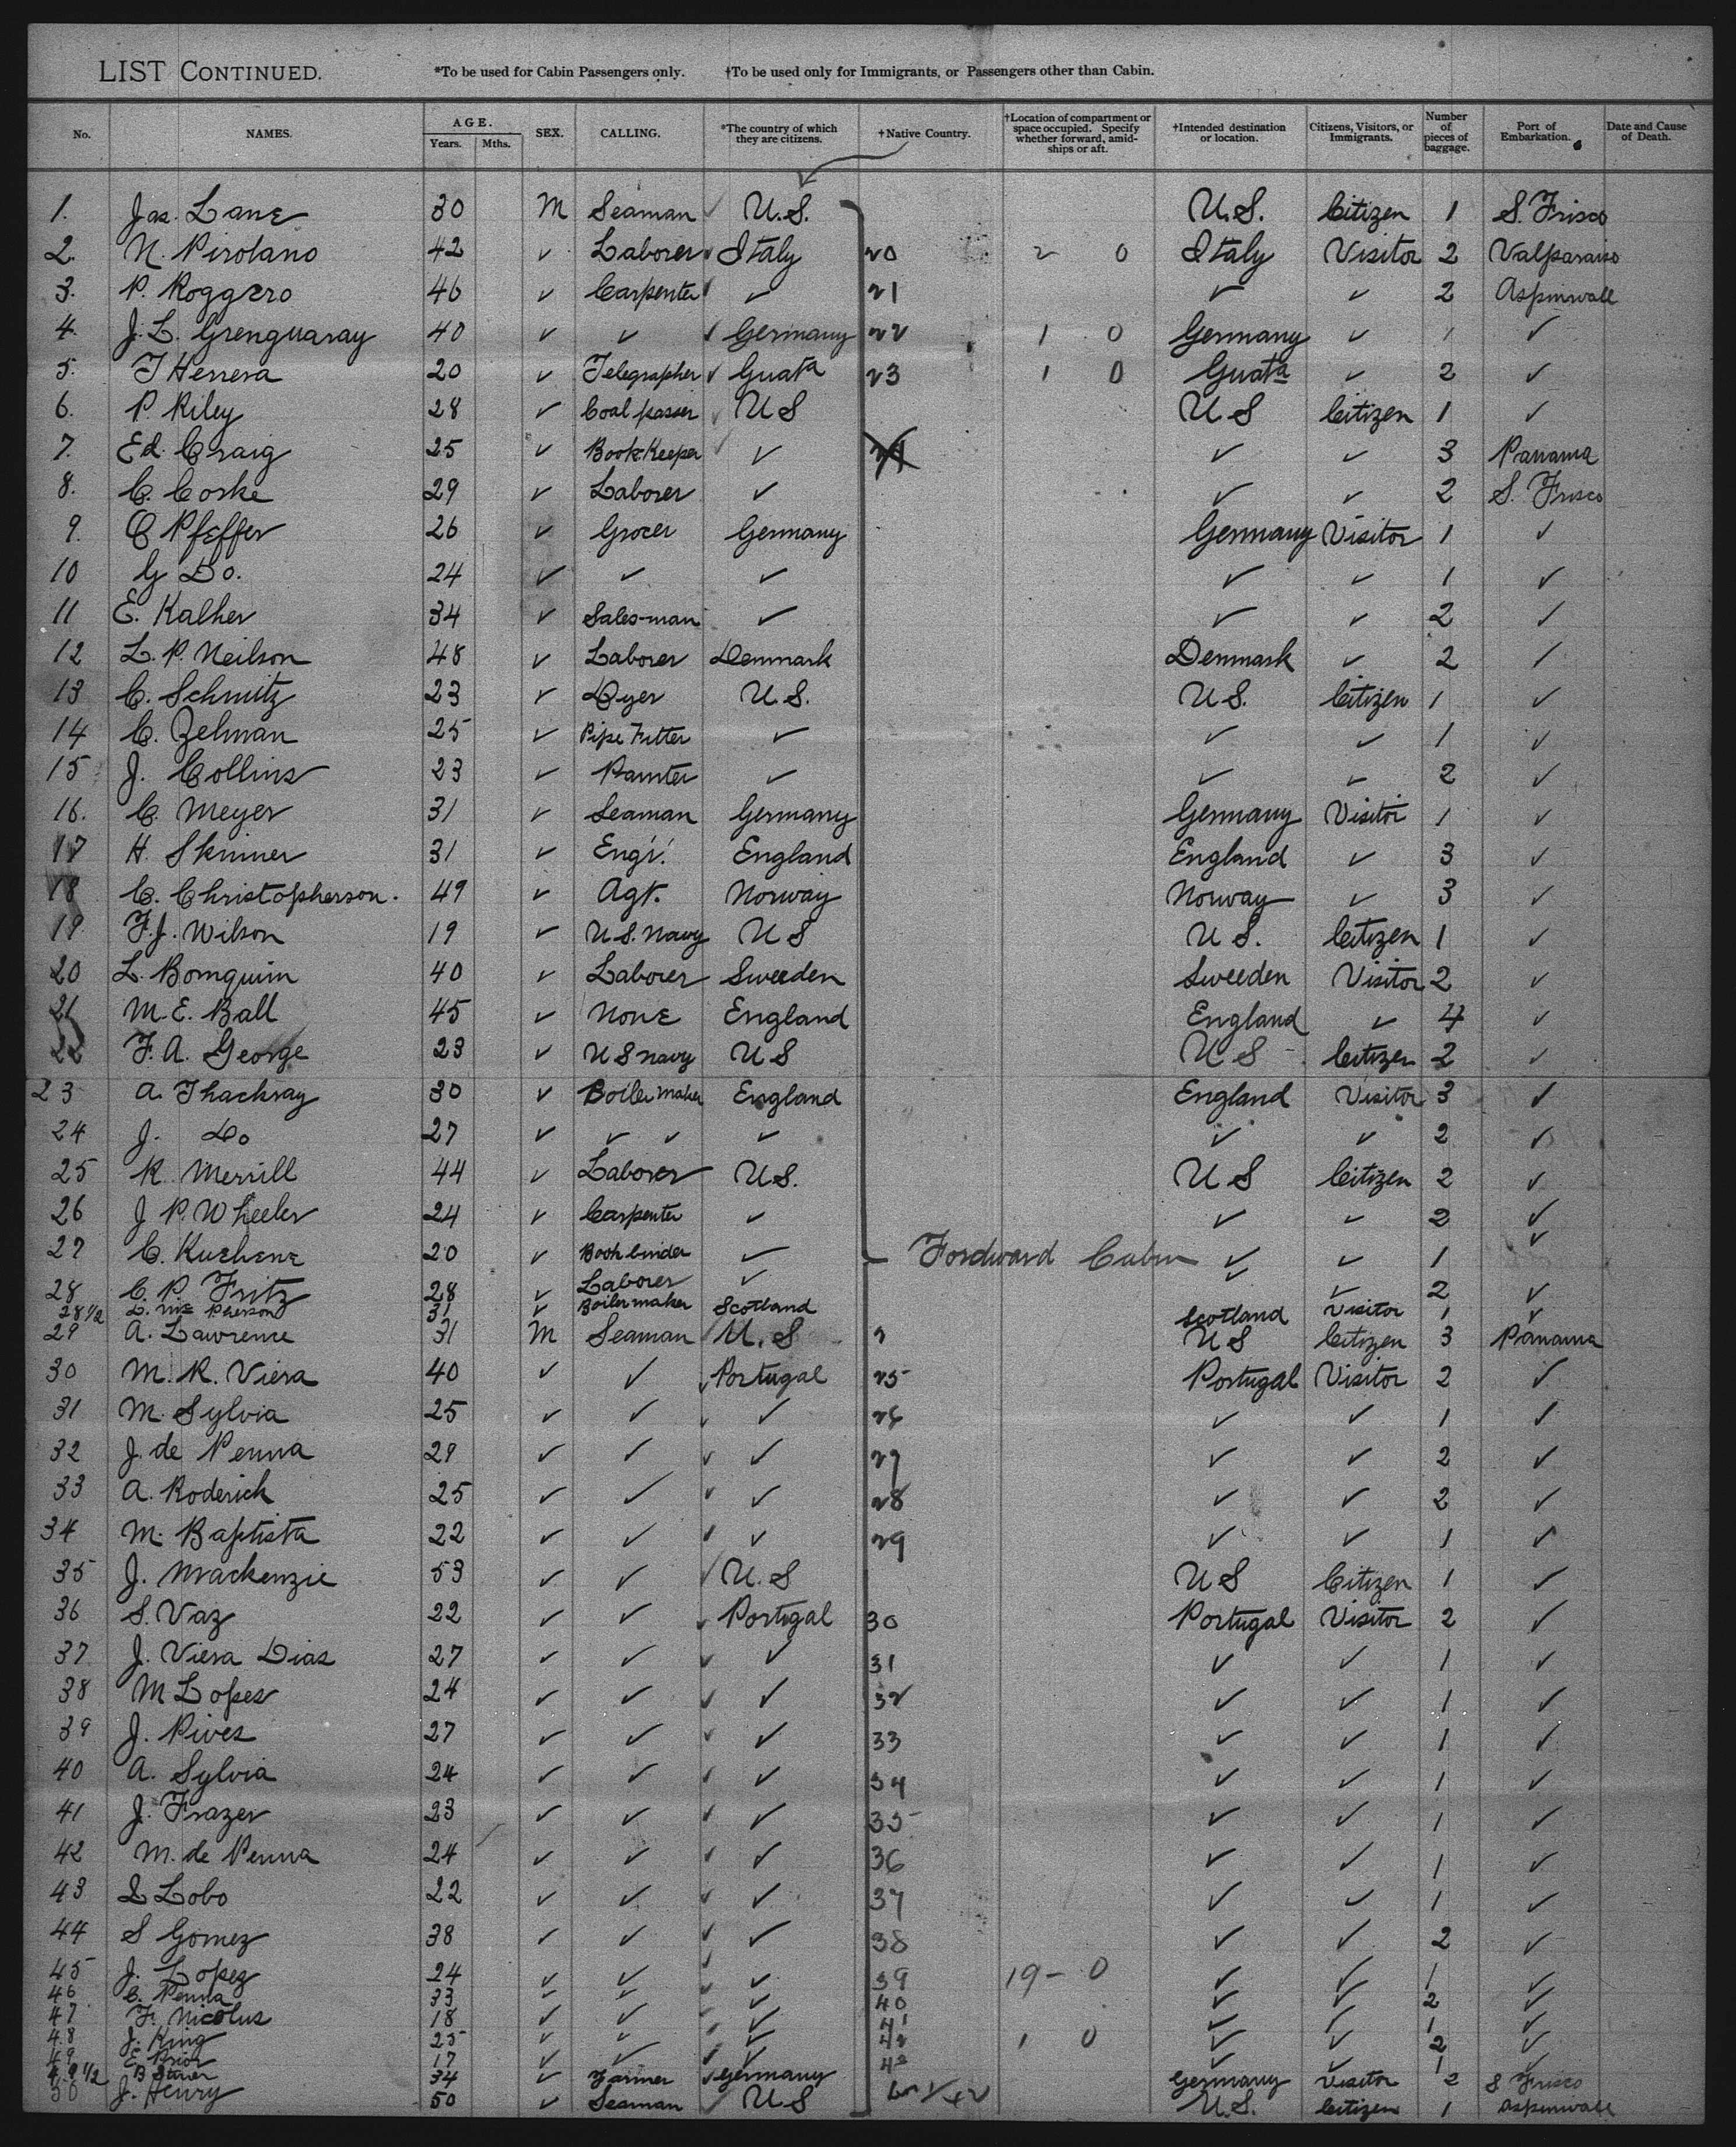 LIST CONTINUED. *To be used for Cabin Passengers only. †To be used only for Immigrants, or Passengers other than Cabin.
No. NAMES. AGE. Years. Mths. SEX. CALLING. *The country of which they are citizens. †Native Country. †Location of compartment or space occupied. Specify whether forward, amidships or aft. †Intended destination or location. Citizens, Visitors, or Immigrants. Number of pieces of baggage. Port of Embarkation. Date and Cause of Death.
1. Jas. Lane 30 M Seaman ✓ U.S. U.S. Citizen 1 S. Frisco
2. N. Pirolano 42 ✓ Laborer ✓ Italy 20 2 0 Italy Visitor 2 Valparaiso
3. P. Roggero 46 ✓ Carpenter ✓ ✓ 21 ✓ ✓ 2 Aspinwall
4. J. L. Grenguaray 40 ✓ ✓ ✓ Germany 22 1 0 Germany ✓ 1 ✓
5. J Herrera 20 ✓ Telegrapher ✓ Guata 23 1 0 Guata ✓ 2 ✓
6. P. Riley 28 ✓ Coal passer ✓ U S U S Citizen 1 ✓
7. Ed. Craig 25 ✓ Book-Keeper ✓ ✓ ✓ ✓ 3 Panama
8. C. Corke 29 ✓ Laborer ✓ ✓ ✓ 2 S. Frisco
9. C Pfeffer 26 ✓ Grocer Germany Germany Visitor 1 ✓
10 G Do. 24 ✓ ✓ ✓ ✓ ✓ 1 ✓
11 E. Kalher 34 ✓ Sales-man ✓ ✓ ✓ 2 ✓
12 L. P. Neilson 48 ✓ Laborer Denmark Denmark ✓ 2 ✓
13 C. Schmitz 23 ✓ Dyer U.S. U S. Citizen 1 ✓
14 C. Zelman 25 ✓ Pipe Fitter ✓ ✓ ✓ 1 ✓
15 J. Collins 23 ✓ Painter ✓ ✓ ✓ 2 ✓
16. C. Meyer 31 ✓ Seaman Germany Germany Visitor 1 ✓
17 H. Skinner 31 ✓ Eng'r. England England ✓ 3 ✓
18 C. Christopherson. 49 ✓ Agt. Norway Norway ✓ 3 ✓
19 F. J. Wilson 19 ✓ U S. Navy U S U S. Citizen 1 ✓
20 L. Bomquim 40 ✓ Laborer Sweeden Sweeden Visitor 2 ✓
21 M. E. Ball 45 ✓ None England England ✓ 4 ✓
22 F. A. George 23 ✓ U S navy U S U S Citizen 2 ✓
23 A. Thackray 30 ✓ Boiler maker England England Visitor 3 ✓
24 J. Do 27 ✓ ✓ ✓ ✓ ✓ ✓ 2 ✓
25 R. Merrill 44 ✓ Laborer U S. U S Citizen 2 ✓
26 J P. Wheeler 24 ✓ Carpenter ✓ ✓ ✓ 2 ✓
27 C. Kuehene 20 ✓ Book binder ✓ Fordward Cabin ✓ ✓ 1 ✓
28 C. P. Fritz 28 ✓ Laborer ✓ ✓ ✓ 2 ✓
28 1/2 D. Mc Pherson 31 ✓ Boiler maker Scotland Scotland Visitor 1 ✓
29 A. Lawrence 31 M Seaman U. S U S Citizen 3 Panama
30 M. R. Viera 40 ✓ ✓ ✓ Portugal 25 Portugal Visitor 2 ✓
31 M. Sylvia 25 ✓ ✓ ✓ ✓ 26 ✓ ✓ 1 ✓
32 J. de Penna 29 ✓ ✓ ✓ ✓ 27 ✓ ✓ 2 ✓
33 A. Roderick 25 ✓ ✓ ✓ ✓ 28 ✓ ✓ 2 ✓
34 M. Baptista 22 ✓ ✓ ✓ ✓ 29 ✓ ✓ 1 ✓
35 J. Mackenzie 53 ✓ ✓ ✓ U. S U S Citizen 1 ✓
36 S. Vaz 22 ✓ ✓ ✓ Portugal 30 Portugal Visitor 2 ✓
37 J. Viera Dias 27 ✓ ✓ ✓ ✓ 31 ✓ ✓ 1 ✓
38 M Lopes 24 ✓ ✓ ✓ ✓ 32 ✓ ✓ 1 ✓
39 J. Pires 27 ✓ ✓ ✓ ✓ 33 ✓ ✓ 1 ✓
40 A. Sylvia 24 ✓ ✓ ✓ ✓ 34 ✓ ✓ 1 ✓
41 J. Frazer 23 ✓ ✓ ✓ ✓ 35 ✓ ✓ 1 ✓
42 M. de Penna 24 ✓ ✓ ✓ ✓ 36 ✓ ✓ 1 ✓
43 Lobo 22 ✓ ✓ ✓ ✓ 37 ✓ ✓ 1 ✓
44 S Gomez 38 ✓ ✓ ✓ ✓ 38 ✓ ✓ 2 ✓
45 J. Lopez 24 ✓ ✓ ✓ ✓ 39 19 - 0 ✓ ✓ 1 ✓
46 C. Penna 33 ✓ ✓ ✓ ✓ 40 ✓ ✓ 2 ✓
47 F. Nicolus 18 ✓ ✓ ✓ ✓ 41 ✓ ✓ 1 ✓
48 J. King 25 ✓ ✓ ✓ ✓ 42 1 0 ✓ ✓ 2 ✓
49 E. Prior 17 ✓ ✓ ✓ ✓ 43 ✓ ✓ 1 ✓
49 1/2 B 34 ✓ Farmer ✓ Germany Germany Visitor 2 S Frisco
50 J. Henry 50 ✓ Seaman ✓ U S U.S. Citizen 1 Aspinwall